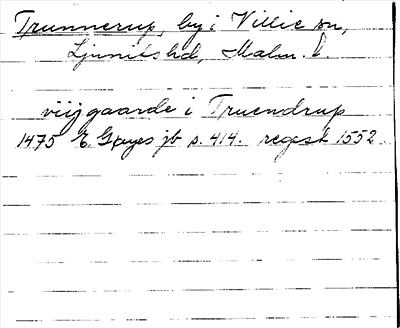 Trunnerup, by i Villie sn,
Ljunits hd, Malm. l.
viij gaarde i Truendrup
1475 E. Gøyes jb s. 414. regest 1552.